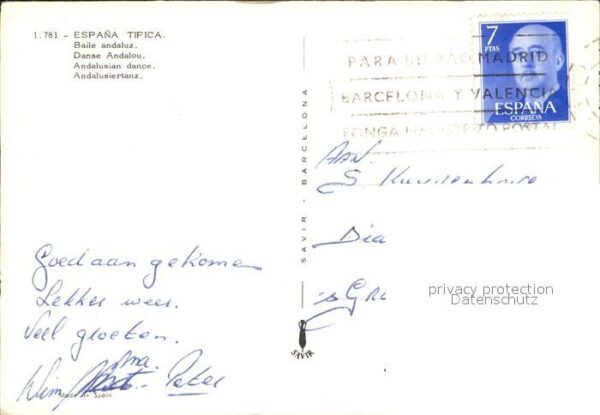 1.781 - ESPAÑA TIFICA.
Baile andaluz.
Danse Andalou.
Andalusian dance.
Andalusiertanz.
7
PTAS
ESPAÑA
CORREOS
PARA BILBAO MADRID
BARCELONA Y VALENCIA
PONGA DISTRITO POSTAL
SAVIR - BARCELONA
AAN.
Goed aan gekomen
Lekker weer.
Veel groeten.
Wim Peter
SAVIR
Made in Spain
privacy protection
Datenschutz